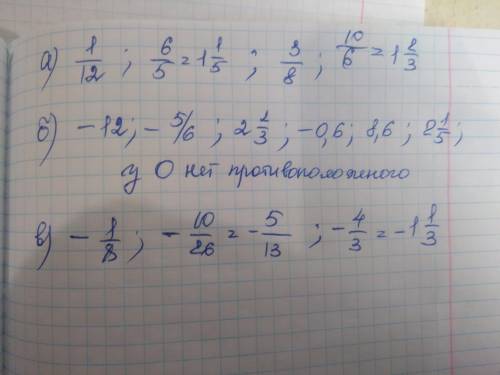 а) 1/12 ; 6/5 = 1 1/5 ; 3/8 ; 10/6 = 1 2/3
б) -12; - 5/6 ; 2 1/3 ; -0,6; 8,6; 2 1/5;
у 0 нет противоположеного
в) - 1/8 ; - 10/26 = - 5/13 ; - 4/3 = -1 1/3